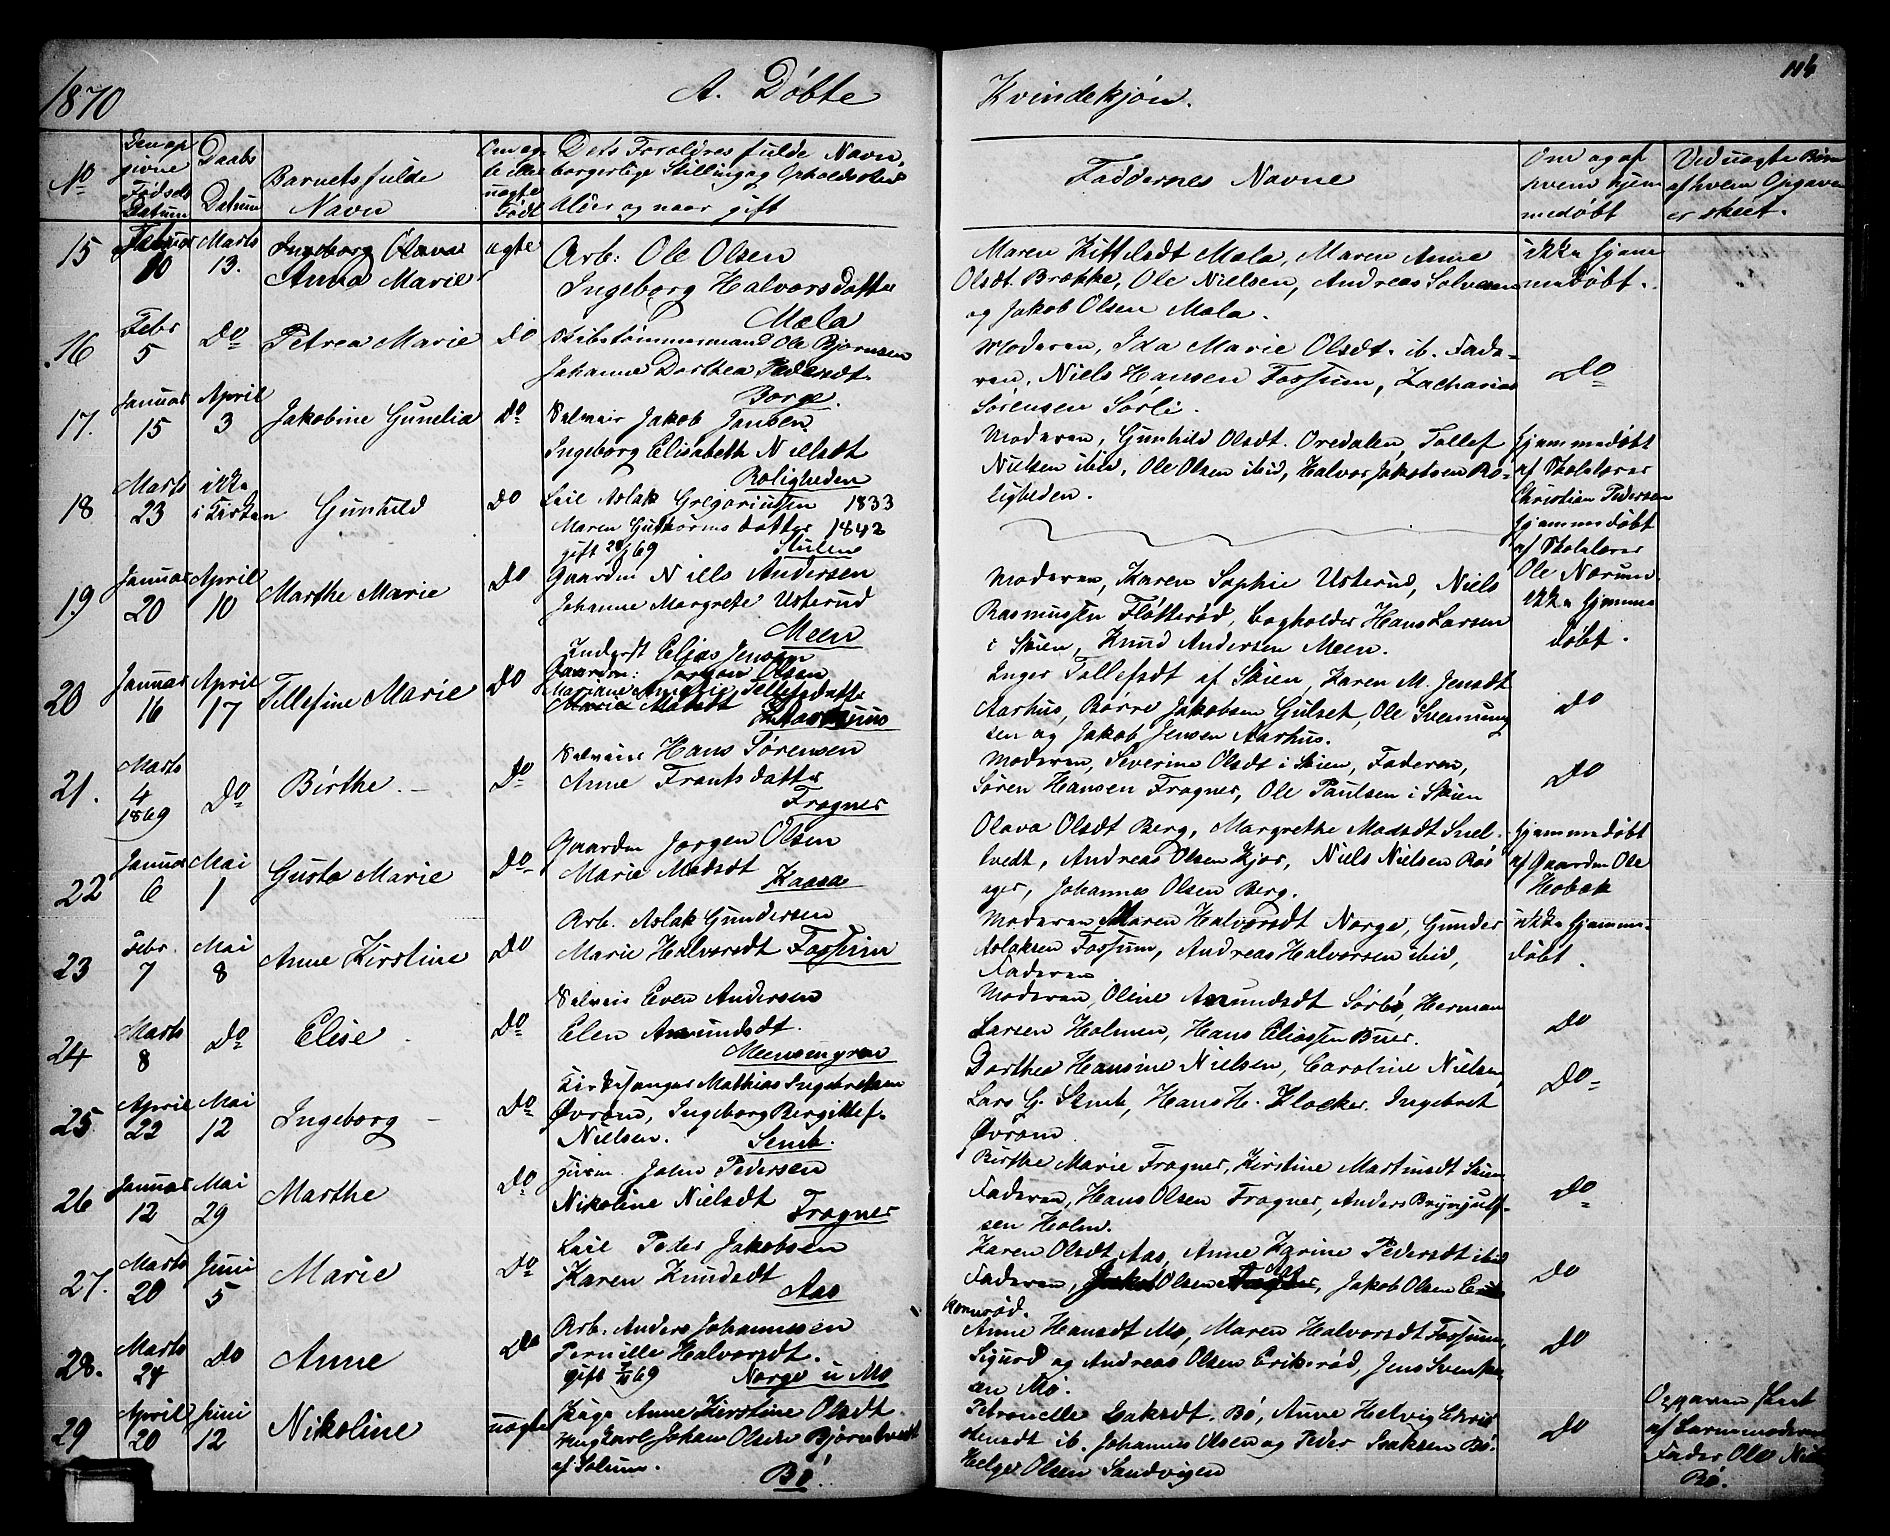 1870
A. Døbte
Kvindekjøn.
116
No
Den op
givne
Fødsels
Datum
Daabs
Datum
Barnets fulde
Navn
Om ægte eller
uægte
Født
Dets Foroldres fulde Navn,
borgerlige Stilling og Opholdssted
Alder og naar gift
Faddernes Navne
Om og af
hvem hjem
medøbt
Ved uægte Børn
af hvem Opgaven
er skeet.
15
Februar
10
Marts
13.
Ingeborg Olava
Anna Marie
ægte
Arb: Ole Olsen
Ingeborg Halvorsdatter
Mæla
Maren Kittelsdt Mæla, Maren Anne
Olsdt Brække, Ole Nielsen, Andreas
og Jakob Olsen Mæla.
ikke hjem
medøbt.
16
Febr
5
Do
Petrea Marie
Do
Skibstømmermand Ole Bjørnsen
Johanne Dorthea Pedersdt.
Borge.
Moderen, Ida Marie Olsdt. ib. Fade-
ren, Niels Hansen Fossum, Zacharias
Sørensen Sørli.
Do
17.
Januar
15
April
3
Jakobine Gunelia
Do
Selveier Jakob Jansen
Ingeborg Elisabeth Nielsdt
Roligheden
Moderen, Gunhild Olsdt. Oredalen, Tollef
Nielsen ibid, Ole Olsen ibid, Halvor Jakobsen Ro-
ligheden.
hjemmedøbt
af Skolelærer
Christian Pedersen
18
Marts
23
ikke
i Kirken
Gunhild
Do
Leil Aslak Gregoriussen 1833
Maren Guttormsdatter 1842
gift 69
hjemmedøbt
af Skolelærer
Ole Norum
19
Januar
20
April
10
Marthe Marie
Do
Gaardm Niels Andersen
Johanne Margrete Usterud
Meen
Moderen, Karen Sophie Usterud, Niels
Rasmussen Fløtterød, Bogholder Hans Larsen
i Skien, Knud Andersen Meen.
ikke hjemme
døbt.
20
Januar
16
April
17
Tellefine Marie
Do
Inderst Elias Jensen
Gaardm: Jørgen Olsen
Tellefsdatter
Marie Madsdt
Inger Tollefsdt af Skien, Karen M. Jensdt
Aarhus, Børre Jakobsen Gulset, Ole Svennung
sen og Jakob Jensen Aarhus.
Do
21.
Marts
4
1869
Do
Birthe.
Do
Selveier Hans Sørensen
Anne Frantsdatter
Frogner
Moderen, Severine Olsdt i Skien, Faderen,
Søren Hansen Frogner, Ole Paulsen i Skien
Do
22
Januar
6
Mai
1
Gusta Marie
Do
Gaardm Jørgen Olsen
Marie Madsdt
Kaasa
Olava Olsdt Berg, Margrethe Madsdt Snel-
tvedt, Andreas Olsen Kjær, Niels Nielsen Røs
ager, Johannes Olsen Berg.
hjemmedøbt
af Gaardm Ole
Hobæk
23
Febr.
7
Mai
8
Anne Kirstine
Do
Arb. Aslak Gundersen
Marie Halvorsdt Fossum
Moderen, Maren Halvorsdt Norge, Gunder
Aslaksen Fossum, Andreas Halvorsen ibid,
Faderen
ikke hjemme-
døbt.
24
Marts
8
Do
Elise
Do
Selveier Even Andersen
Elen Amundsdt.
Meensengren
Moderen, Oline Amundsdt Sørbø, Herman
Larsen Holmen, Hans Eliassen Buer.
Do
25
April
22
Mai
12
Ingeborg
Do
Kirkesanger Mathias Ingebretsen
Øvrom, Ingeborg Bergitte f.
Nielsen. Semb.
Dorthea Hansine Nielsen, Caroline Nielsen
Lars G. Semb, Hans H. Klocker. Ingebret
Øvrom
Do
26
Januar
12
Mai
29
Marthe
Do
John Pedersen
Nikoline Nielsdt
Frogner
Birthe Marie Frogner, Kirstine Martinsdt Skien
Faderen, Hans Olsen Frogner, Anders Brynjulf-
sen Holm.
Do
27.
Marts
20
Juni
5
Marie
Do
Leil Peder Jakobsen
Karen Knudsdt
Aas
Karen Olsdt Aas, Anne Karine Pedersdt ibid
Faderen, Olsen Aas, Jakob Olsen
Do
28.
Marts
24
Do
Anne
Do
Arb. Anders Johannessen
Pernille Halvorsdt.
gift 69 Norge u Mo
Anne Hansdt Mo, Maren Halvorsdt Fossum,
Sigurd og Andreas Olsen Erikerød, Jens Svenke
sen Mo.
Do
29
April
20
Juni
12
Nikoline
uægte
Pige Anne Kirstine Olsdt.
Ungkarl Johan Olsen Bjørntvedt
af Solum.
Bø.
Petronelle Isaksdt. Bø, Anne Helvig Chris
tensdt ib. Johannes Olsen og Peder Isaksen Bø.
Helge Olsen Sandvigen
Do
Opgaven skeet
af Barnemoderens
Fader Ole
Bø.